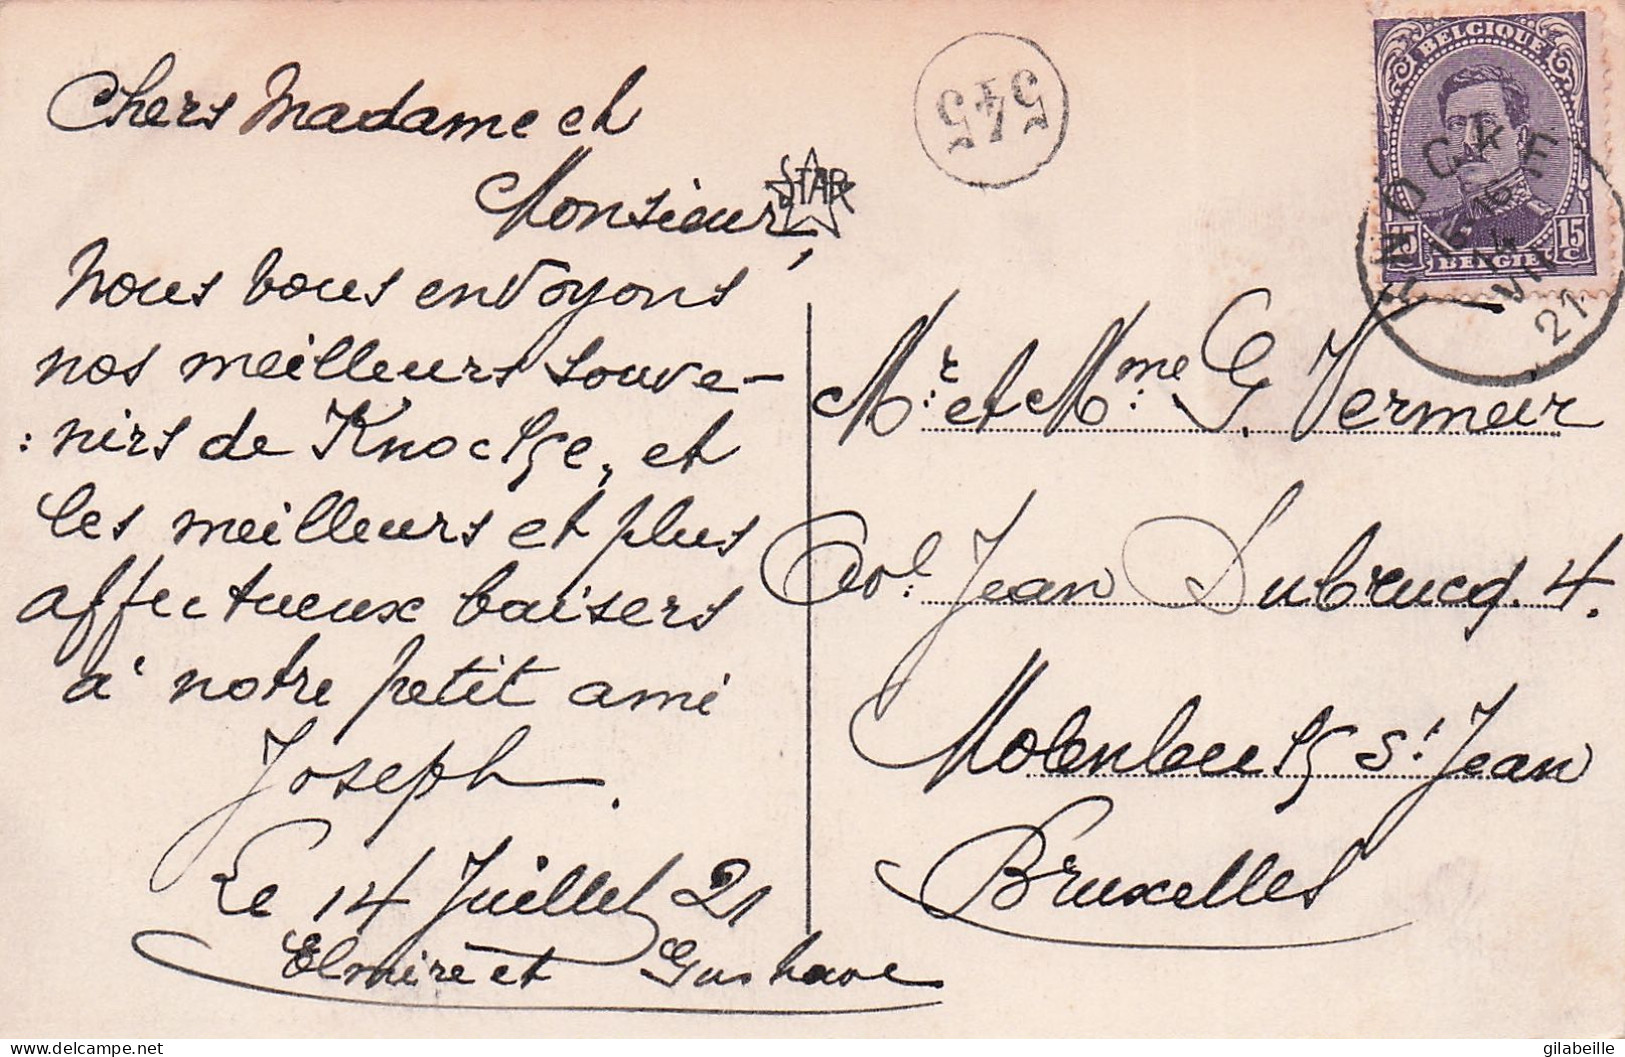 Chers Madame et
Monsieur,
STAR
Nous vous envoyons
nos meilleurs souve-
:nirs de Knocke, et
les meilleurs et plus
affectueux baisers
à notre petit ami
Joseph.
Le 14 Juillet 21
Elmire et Gustave
545
BELGIQUE
15 15
C
BELGIË
KNOCKE
14
VII
21
Mr. et Mme. G. Vermeir
Jean Dubrucq. 4.
Molenbeek St. Jean
Bruxelles
delcampe.net
gilabeille